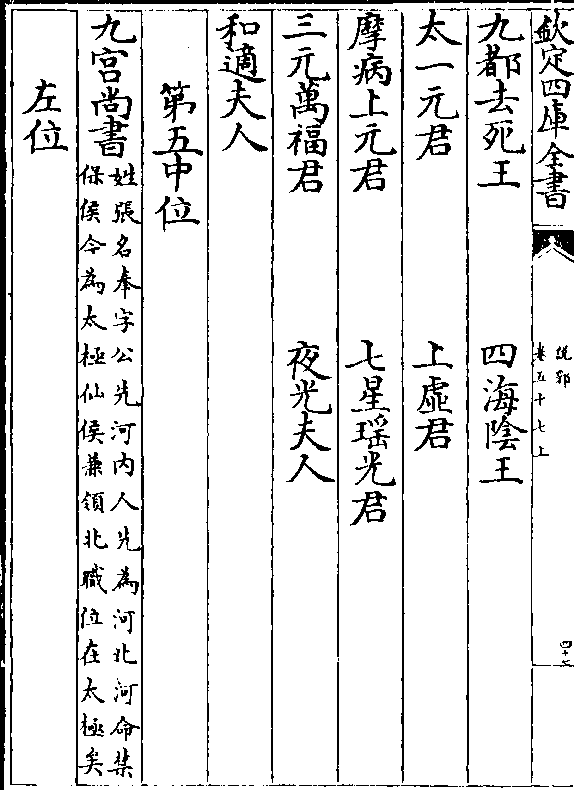 欽定四庫全書
說郛
卷五十七上
九都去死王　四海陰王
太一元君　上虛君
摩病上元君　七星瑶光君
三元萬福君　夜光夫人
和適夫人
第五中位
九宫尚書
姓張名奉字公先河内人先為河北河命禁
保侯今為太極仙侯兼領北職位在太極矣
左位